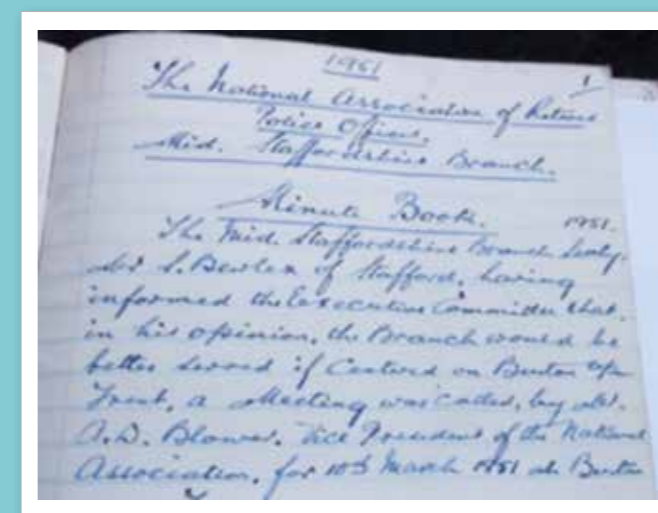 1951
1
The National Association of Retired
Police Officers.
Mid. Staffordshire Branch.
Minute Book. 1951.
The Mid. Staffordshire Branch Secty.
Mr S. of Stafford, having
informed the Executive Committee that,
in his opinion, the Branch would be
better served if Centred on Burton upon
Trent, a Meeting was called, by Mr.
A.D. Blower. Vice President of the National
Association, for 10th March 1951 at Burton